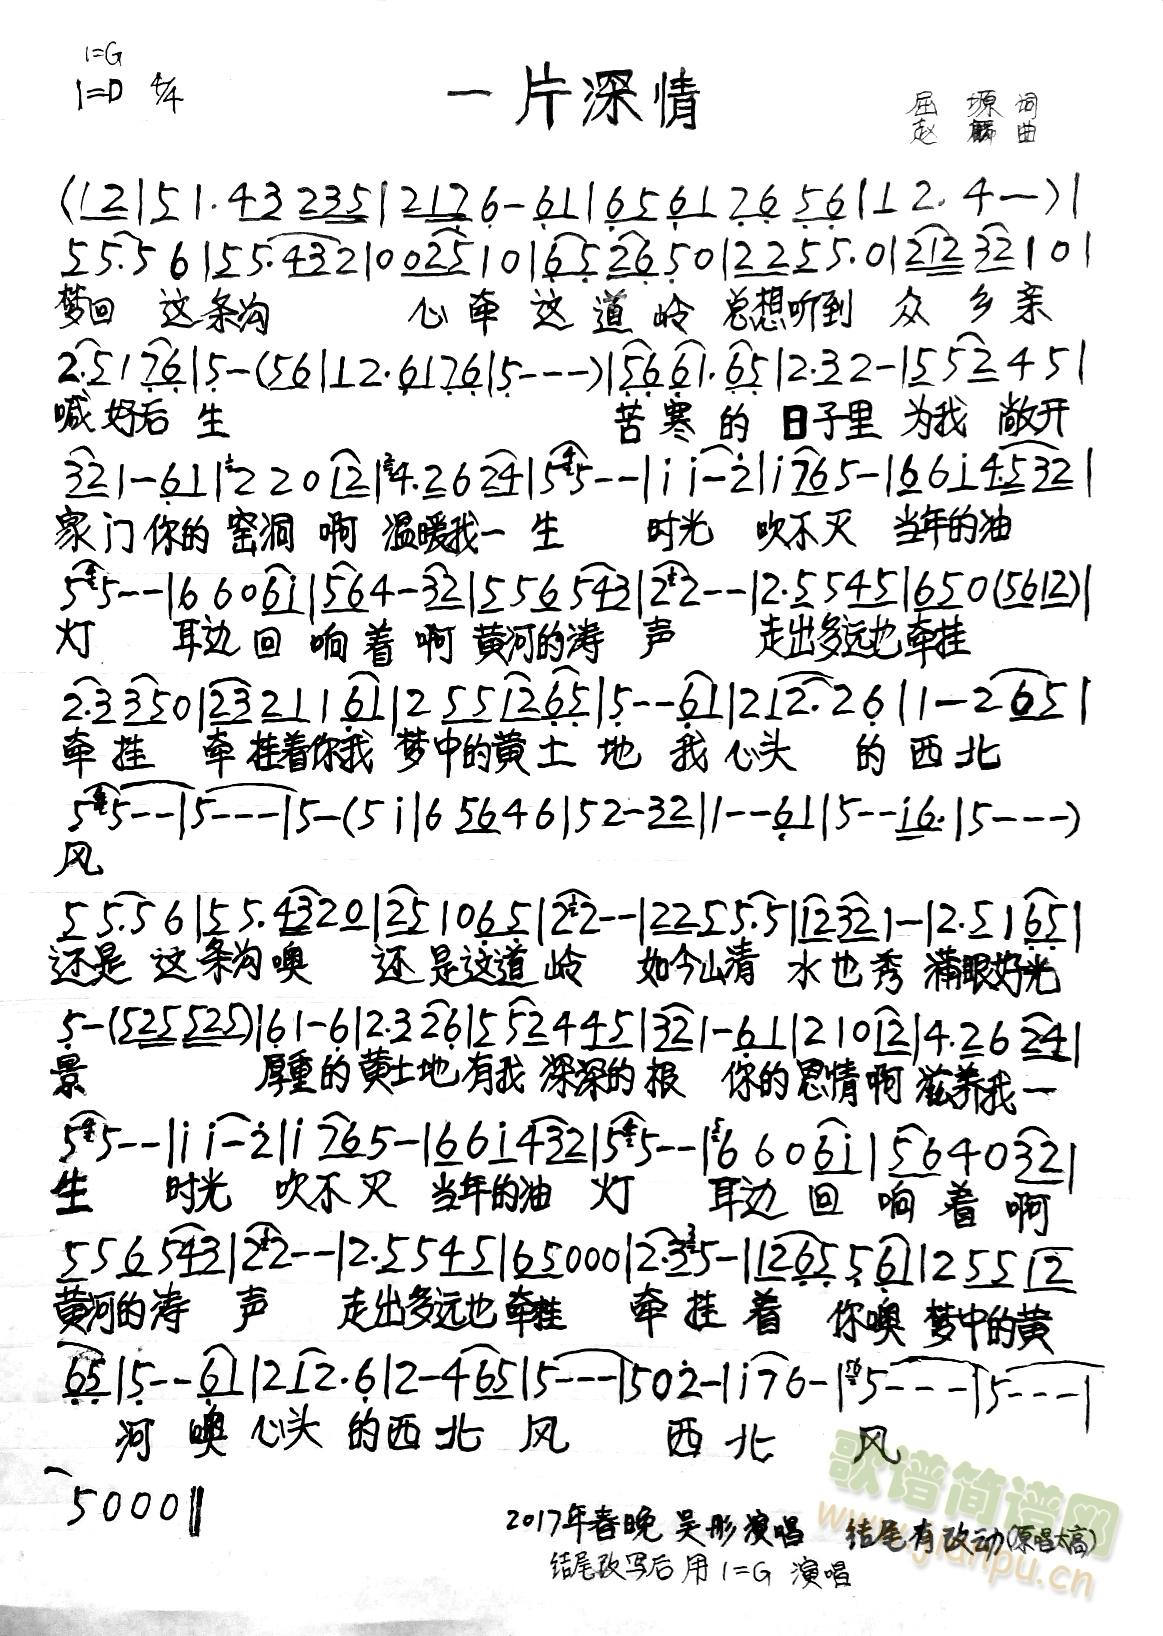 1=G
1=D 4/4
一片深情
屈 塬 词
赵 麟 曲
(12|51.43 235|2176-61|6561 7656|12.4--)|
55.56|55.432|002510|652650|2255.0|2123210|
梦回 这条沟 心牵 这道岭 总想听到 众乡亲
2.5176|5-(56|12.6176|5---)|5661.65|2.32-|552245|
喊好后生 苦寒的日子里 为我敞开
321-61|22012|4.2624|55--|ii-2|i765-|66i4.532|
家门你的窑洞 啊 温暖我一生 时光 吹不灭 当年的油
55--|6606i|564-32|556543|22--|2.5545|650(5612)|
灯 耳边回响着啊 黄河的涛声 走出多远也牵挂
2.3350|2321161|2551265|5--61|212.26|1-265|
牵挂 牵挂着你我 梦中的黄土地 我心头 的西北
55---|5---|5-(5i|656646|52-32|1--61|5--i6.|5---)
风
55.56|55.4320|251065|22--|2255.5|12321-|2.5165|
还是 这条沟噢 还是这道岭 如今山清 水也秀 满眼好光
5-(525525)|61-6|2.326|552445|321-61|21012|4.2624|
景 厚重的黄土地有我 深深的报 你的恩情啊滋养我一
55--|ii-2|i765-|66i432|55--|6606i|564032|
生 时光 吹不灭 当年的油 灯 耳边回响着啊
556543|22--|2.5545|65000|2.35-|1265561|25512
黄河的涛 声 走出多远也牵挂 牵挂着 你噢梦中的黄
65|5--61|212.6|2-465|5---|502-|i76-|5---|5---|
河 噢 心头 的西北 风 西北 风
5000‖
2017年春晚 吴彤演唱 结尾有改动(原唱太高)
结尾改写后用1=G 演唱
歌谱简谱网
www.jianpu.cn